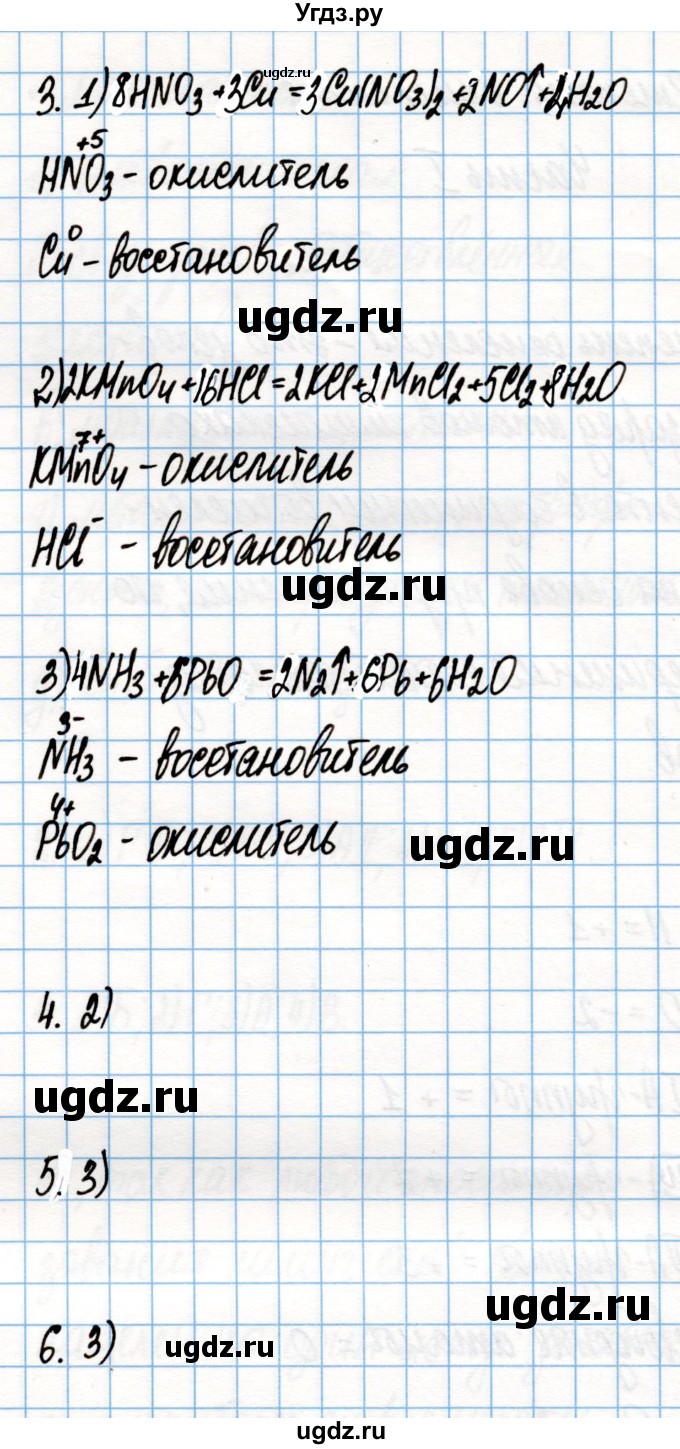 Угдз.ру
ugdz.ru
3. 1) 8HNO3 + 3Cu = 3Cu(NO3)2 + 2NO↑ + 4H2O
+5
HNO3 - окислитель
0
Cu - восстановитель
ugdz.ru
2) 2KMnO4 + 16HCl = 2KCl + 2MnCl2 + 5Cl2 + 8H2O
7+
KMnO4 - окислитель
HCl⁻ - восстановитель
ugdz.ru
3) 4NH3 + 6PbO = 2N2↑ + 6Pb + 6H2O
3-
NH3 - восстановитель
4+
PbO2 - окислитель
ugdz.ru
4. 2)
ugdz.ru
5. 3)
ugdz.ru
6. 3)
ugdz.ru
ugdz.ru